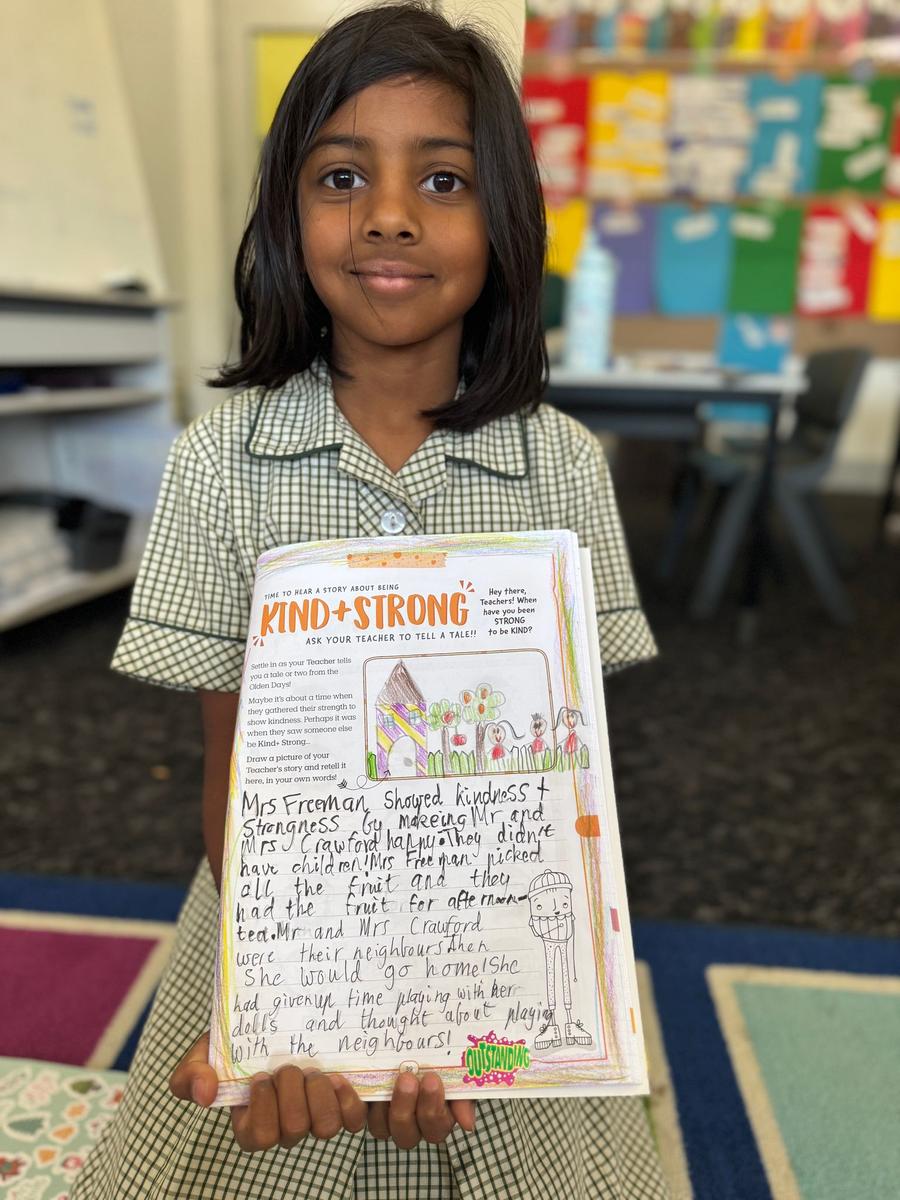 TIME TO HEAR A STORY ABOUT BEING
KIND+STRONG
ASK YOUR TEACHER TO TELL A TALE!!
Hey there,
Teachers! When
have you been
STRONG
to be KIND?
Settle in as your Teacher tells
you a tale or two from the
Olden Days!
Maybe it's about a time when
they gathered their strength to
show kindness. Perhaps it was
when they saw someone else
be Kind+ Strong...
Draw a picture of your
Teacher's story and retell it
here, in your own words!
Mrs Freeman showed kindness +
Strongness by makeing Mr and
Mrs Crawford happy. They didn't
have children! Mrs Freeman picked
all the fruit and they
had the fruit for afternoon
tea. Mr and Mrs Crawford
were their neighbours. then
She would go home! She
had given up time playing with her
dolls and thought about playing
with the neighbours!
OUTSTANDING